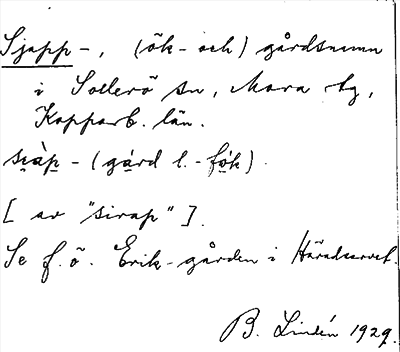 Sjapp-, (ök- och) gårdsnamn
i Sollerö sn, Mora tg,
Kopparb. län.
siàp - (gárd l. -fók).
[ av "sirap" ].
Se f.ö. Erik-gården i Häradsarvet.
B. Lindén 1929.